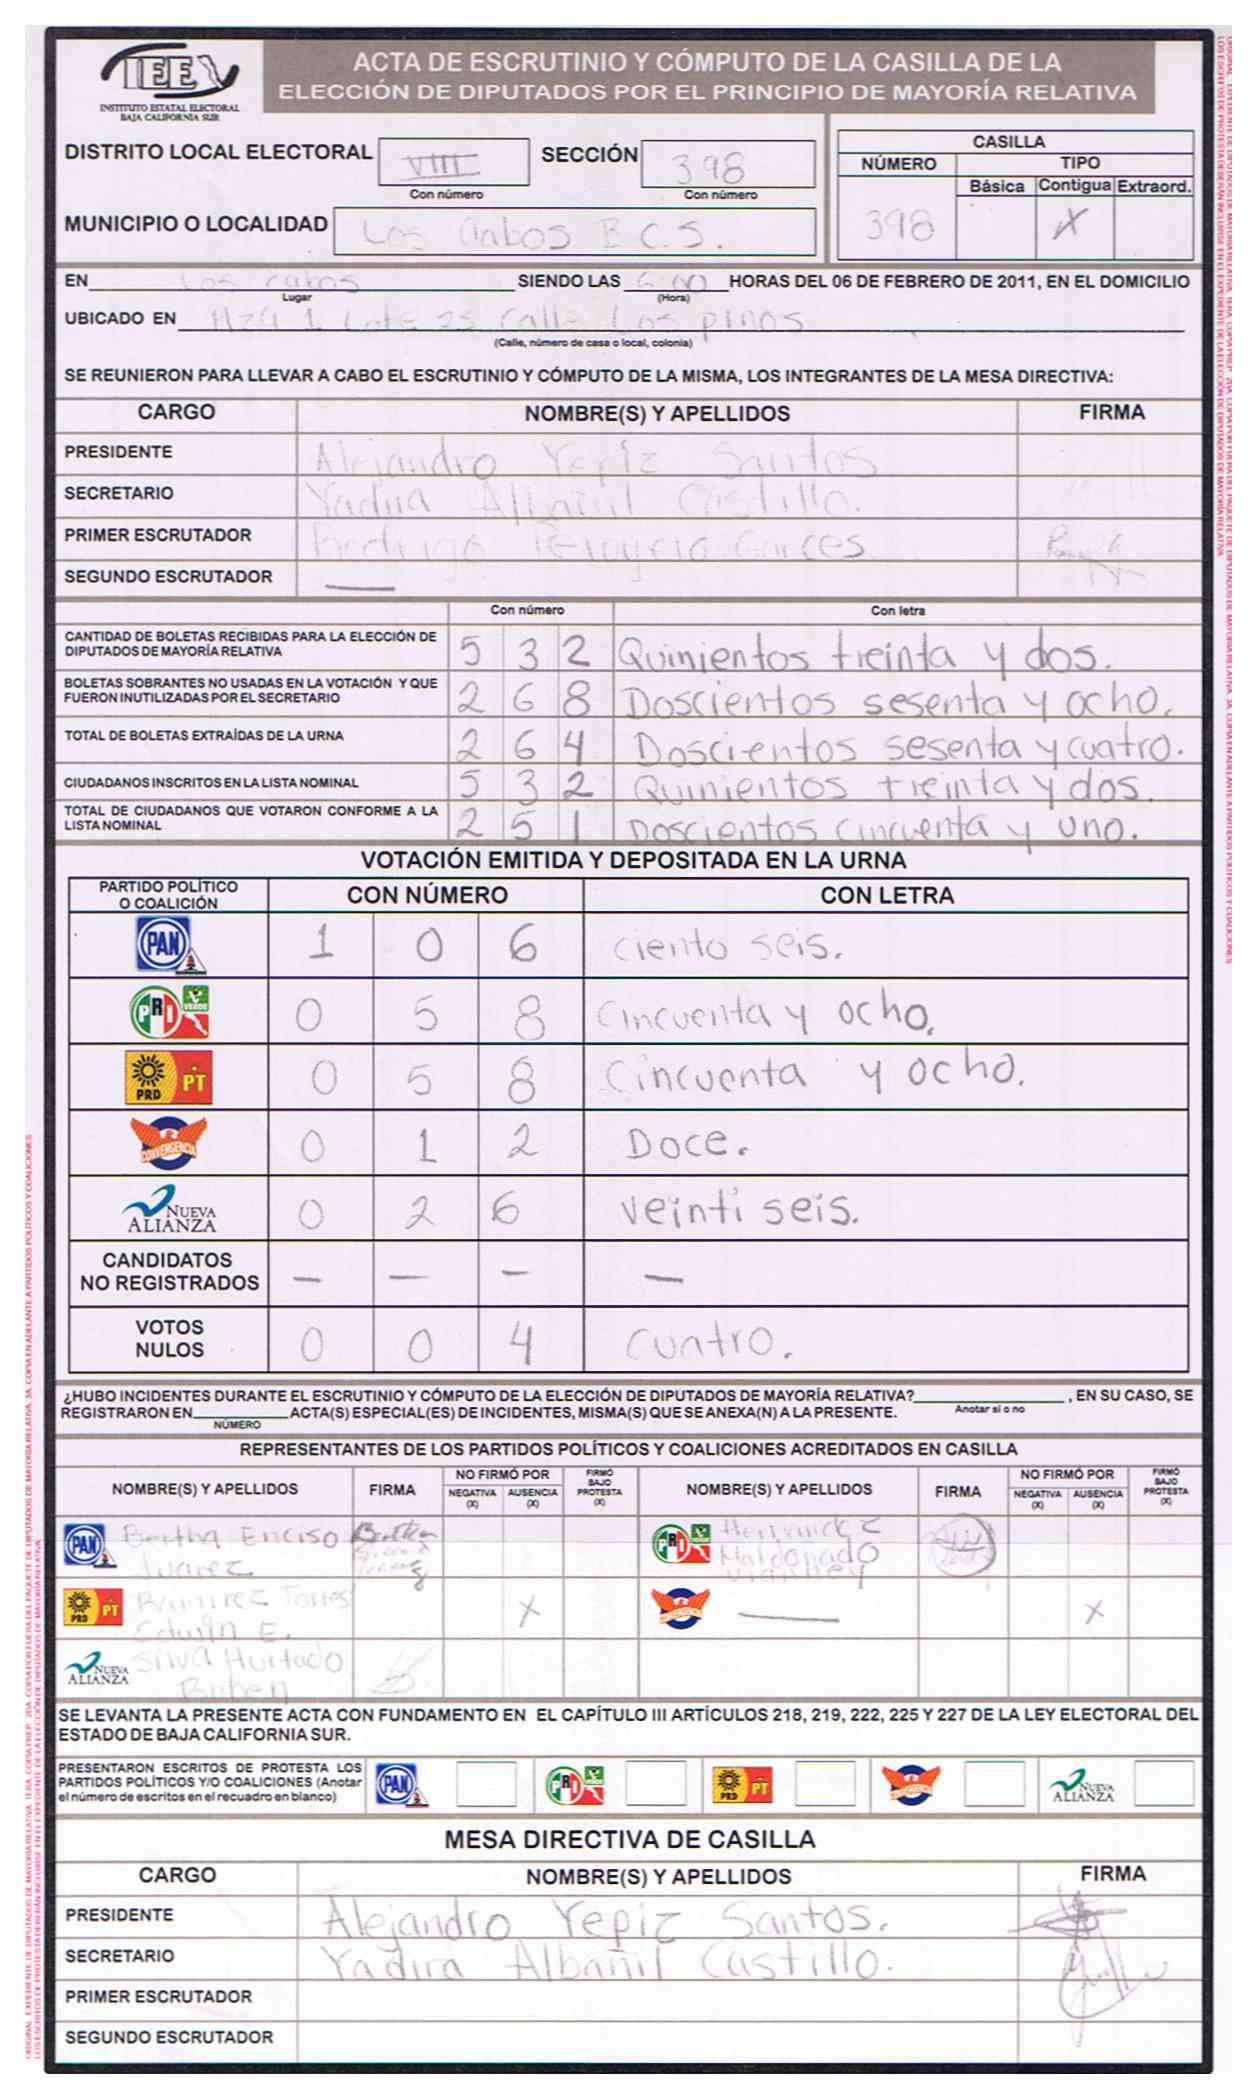 IEE
INSTITUTO ESTATAL ELECTORAL
BAJA CALIFORNIA SUR
ACTA DE ESCRUTINIO Y CÓMPUTO DE LA CASILLA DE LA
ELECCIÓN DE DIPUTADOS POR EL PRINCIPIO DE MAYORÍA RELATIVA
DISTRITO LOCAL ELECTORAL VIII SECCIÓN 398
Con número Con número
MUNICIPIO O LOCALIDAD Los Cabos B.C.S.
CASILLA
NÚMERO TIPO
Básica Contigua Extraord.
398 X
EN Los cabos SIENDO LAS 6:00 HORAS DEL 06 DE FEBRERO DE 2011, EN EL DOMICILIO
Lugar (Hora)
UBICADO EN Mza 1 Lote 25 Calle Los pinos
(Calle, número de casa o local, colonia)
SE REUNIERON PARA LLEVAR A CABO EL ESCRUTINIO Y CÓMPUTO DE LA MISMA, LOS INTEGRANTES DE LA MESA DIRECTIVA:
CARGO NOMBRE(S) Y APELLIDOS FIRMA
PRESIDENTE Alejandro Yepiz Santos
SECRETARIO Yadira Albañil Castillo.
PRIMER ESCRUTADOR Rodrigo Garces
SEGUNDO ESCRUTADOR —
Con número Con letra
CANTIDAD DE BOLETAS RECIBIDAS PARA LA ELECCIÓN DE
DIPUTADOS DE MAYORÍA RELATIVA 5 3 2 Quinientos treinta y dos.
BOLETAS SOBRANTES NO USADAS EN LA VOTACIÓN Y QUE
FUERON INUTILIZADAS POR EL SECRETARIO 2 6 8 Doscientos sesenta y ocho.
TOTAL DE BOLETAS EXTRAÍDAS DE LA URNA 2 6 4 Doscientos sesenta y cuatro.
CIUDADANOS INSCRITOS EN LA LISTA NOMINAL 5 3 2 Quinientos treinta y dos.
TOTAL DE CIUDADANOS QUE VOTARON CONFORME A LA
LISTA NOMINAL 2 5 1 Doscientos cincuenta y uno.
VOTACIÓN EMITIDA Y DEPOSITADA EN LA URNA
PARTIDO POLÍTICO
O COALICIÓN CON NÚMERO CON LETRA
PAN 1 0 6 ciento seis.
PRI VERDE 0 5 8 cincuenta y ocho.
PRD PT 0 5 8 cincuenta y ocho.
CONVERGENCIA 0 1 2 Doce.
NUEVA ALIANZA 0 2 6 veinti seis.
CANDIDATOS
NO REGISTRADOS — — — —
VOTOS
NULOS 0 0 4 cuatro.
¿HUBO INCIDENTES DURANTE EL ESCRUTINIO Y CÓMPUTO DE LA ELECCIÓN DE DIPUTADOS DE MAYORÍA RELATIVA? , EN SU CASO, SE
Anotar si o no
REGISTRARON EN ACTA(S) ESPECIAL(ES) DE INCIDENTES, MISMA(S) QUE SE ANEXA(N) A LA PRESENTE.
NÚMERO
REPRESENTANTES DE LOS PARTIDOS POLÍTICOS Y COALICIONES ACREDITADOS EN CASILLA
NOMBRE(S) Y APELLIDOS FIRMA NO FIRMÓ POR NEGATIVA (X) AUSENCIA (X) FIRMÓ BAJO PROTESTA (X) NOMBRE(S) Y APELLIDOS FIRMA NO FIRMÓ POR NEGATIVA (X) AUSENCIA (X) FIRMÓ BAJO PROTESTA (X)
PAN Bertha Enciso
Juarez
PRI VERDE Hernandez
Maldonado
Vianney
PRD PT Ramirez Torres
Edwin E. X
CONVERGENCIA — X
NUEVA ALIANZA Silva Hurtado
Ruben
SE LEVANTA LA PRESENTE ACTA CON FUNDAMENTO EN EL CAPÍTULO III ARTÍCULOS 218, 219, 222, 225 Y 227 DE LA LEY ELECTORAL DEL
ESTADO DE BAJA CALIFORNIA SUR.
PRESENTARON ESCRITOS DE PROTESTA LOS
PARTIDOS POLÍTICOS Y/O COALICIONES (Anotar
el número de escritos en el recuadro en blanco)
PAN PRI VERDE PRD PT CONVERGENCIA NUEVA ALIANZA
MESA DIRECTIVA DE CASILLA
CARGO NOMBRE(S) Y APELLIDOS FIRMA
PRESIDENTE Alejandro Yepiz Santos.
SECRETARIO Yadira Albañil Castillo.
PRIMER ESCRUTADOR
SEGUNDO ESCRUTADOR